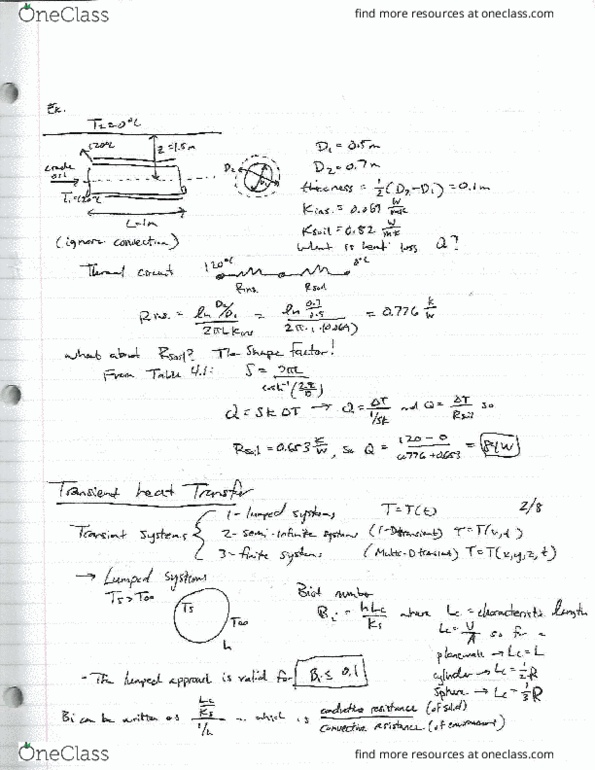 OneClass
find more resources at oneclass.com
Ex.
T₂=0°C
120°C
z=1.5m
crude oil
T₁=120°C
L=1m
(ignore convection)
D₂
D₁
D₁ = 0.5m
D₂ = 0.7m
thickness = ½(D₂-D₁) = 0.1m
Kins. = 0.069 W/mK
Ksoil = 0.82 W/mK
What is heat loss Q?
Thermal circuit 120°C 0°C
Rins. Rsoil
Rins. = ln D₂/D₁ / 2πLKins = ln 0.7/0.5 / 2π·1·(0.069) = 0.776 K/W
what about Rsoil? The Shape Factor!
From Table 4.1: S = 2πL / cosh⁻¹(2z/D)
Q = SKΔT → Q = ΔT / 1/SK and Q = ΔT/Rsoil so
Rsoil = 0.653 K/W, so Q = 120-0 / 0.776+0.653 = 84W
Transient heat Transfer
2/8
Transient systems
1- lumped systems T=T(t)
2- semi-infinite systems (1-D transient) T=T(x,t)
3- finite systems (Multi-D transient) T=T(x,y,z,t)
→ Lumped systems
Ts>T∞
Ts
T∞
h
Biot number
Bi = hLc/Ks where Lc = characteristic length
Lc = V/A so for a
plane wall → Lc = L
cylinder → Lc = ½R
Sphere → Lc = ⅓R
- The lumped approach is valid for Bi ≤ 0.1
Bi can be written as Lc/Ks / 1/h ... which is conductive resistance (of solid) / convective resistance (of environment)
OneClass
find more resources at oneclass.com